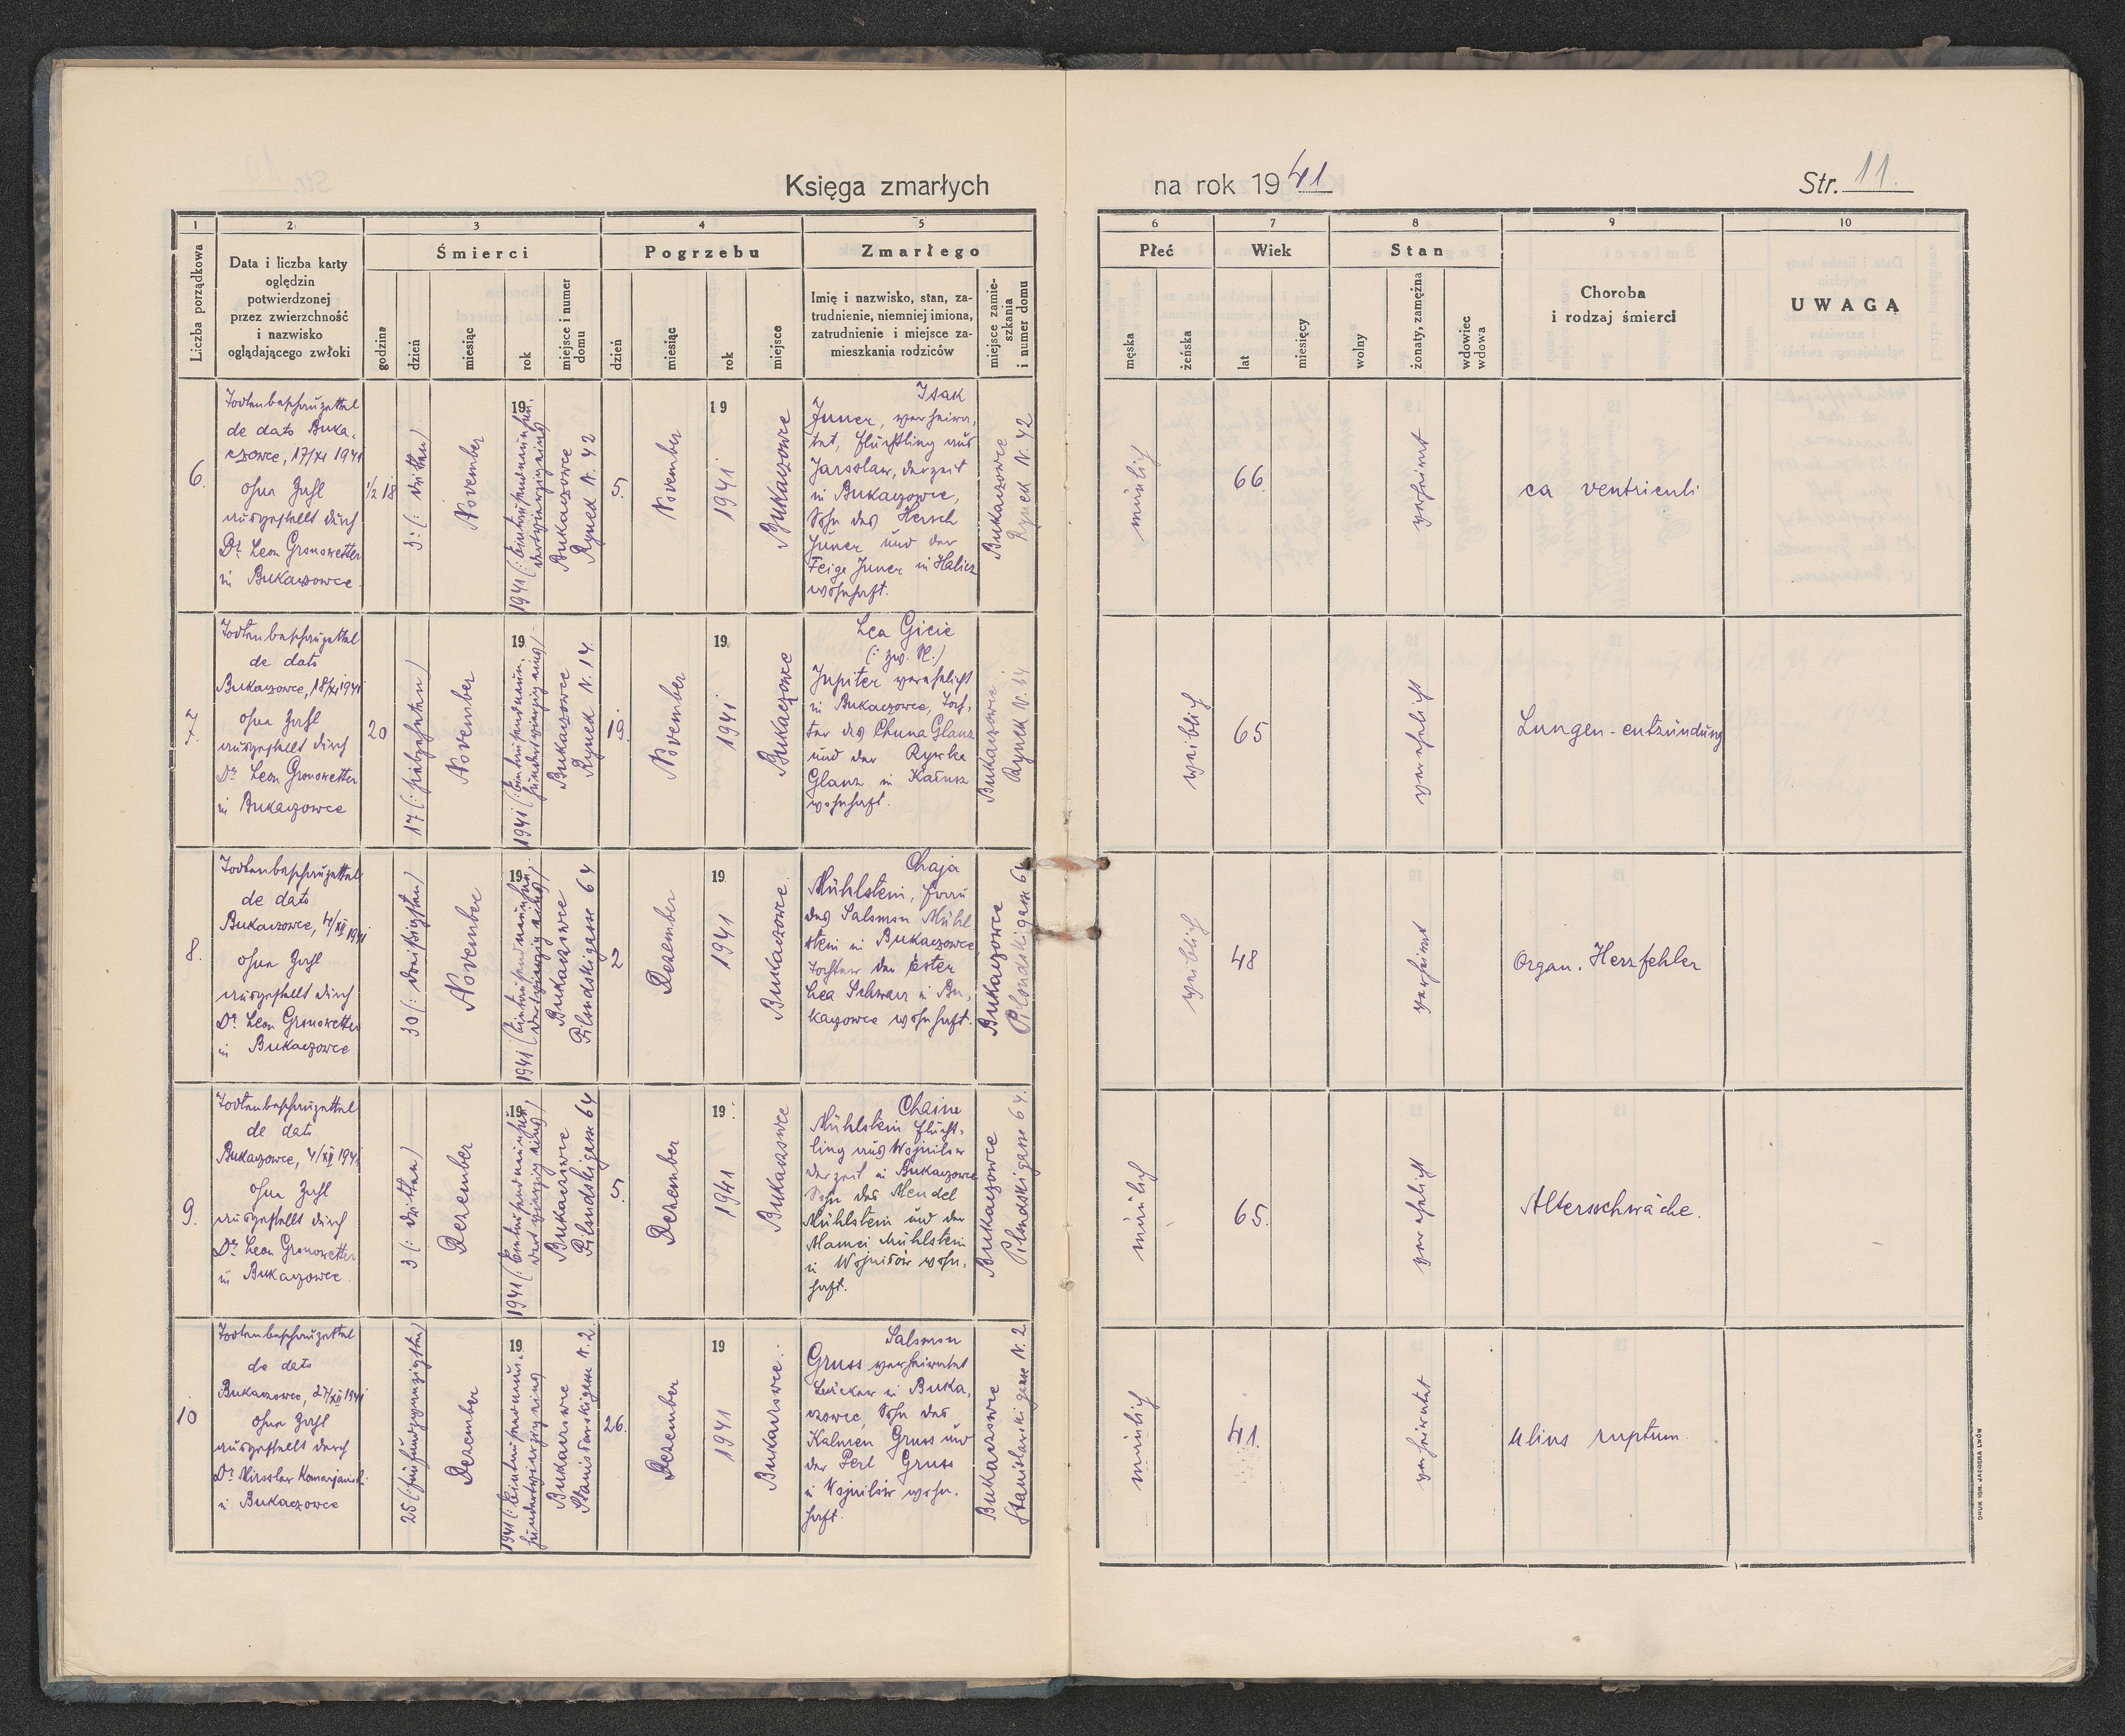 Księga zmarłych na rok 1941 Str. 11.
1 2 3 4 5 6 7 8 9 10
Liczba porządkowa
Data i liczba karty
oględzin
potwierdzonej
przez zwierzchność
i nazwisko
oglądającego zwłoki
Śmierci
godzina
dzień
miesiąc
rok
miejsce i numer
domu
Pogrzebu
dzień
miesiąc
rok
miejsce
Zmarłego
Imię i nazwisko, stan, za-
trudnienie, niemniej imiona,
zatrudnienie i miejsce za-
mieszkania rodziców
miejsce zamie-
szkania
i numer domu
Płeć
męska
żeńska
Wiek
lat
miesięcy
Stan
wolny
żonaty, zamężna
wdowiec
wdowa
Choroba
i rodzaj śmierci
UWAGA
6.
Todtenbeschauzettel
de dato Buka-
czowce, 17/XI 1941
ohne Zahl
ausgestellt durch
Dr. Leon Gronowetter
in Bukaczowce
1/2 18
3 (: dritten)
November
19
1941 (: Eintausendneunhun-
dertvierzigeins
Bukaczowce
Rynek N. 42
5.
November
19
1941
Bukaczowce
Isak
Juner, verheira-
tet, Flüchtling aus
Jaroslaw, derzeit
in Bukaczowce,
Sohn des Hersch
Juner und der
Feige Juner in Halicz
wohnhaft.
Bukaczowce
Rynek N. 42
männlich
66
verheirat
ca ventriculi
7.
Todtenbeschauzettel
de dato
Bukaczowce, 18/XI 1941
ohne Zahl
ausgestellt durch
Dr. Leon Gronowetter
in Bukaczowce
20
17 (: siebzehnten)
November
19
1941 (: Eintausendneun-
hundertvierzigeins)
Bukaczowce
Rynek N. 14.
19.
November
19
1941
Bukaczowce
Lea Gicie
(: zw. N.:)
Jupiter verehelicht
in Bukaczowce, Toch-
ter des Chuna Glanz
und der Rywka
Glanz in Kałusz
wohnhaft.
Bukaczowce
Rynek N. 14
weiblich
65
verehelicht
Lungen-entzündung
8.
Todtenbeschauzettel
de dato
Bukaczowce, 4/XII 1941
ohne Zahl
ausgestellt durch
Dr. Leon Gronowetter
in Bukaczowce
30 (: dreißigsten)
November
19
1941 (: Eintausendneunhun-
dertvierzigeins)
Bukaczowce
Pilsudskigasse 64
2
Dezember
19
1941
Bukaczowce
Chaja
Mühlstein, Frau
des Salomon Mühl
stein in Bukaczowce
Tochter der Ester
Lea Schwarz in Bu-
kaczowce wohnhaft.
Bukaczowce
Pilsudskigasse 64
weiblich
48
verheirat
Organ. Herzfehler
9.
Todtenbeschauzettel
de dato
Bukaczowce, 4/XII 1941
ohne Zahl
ausgestellt durch
Dr. Leon Gronowetter
in Bukaczowce
3 (: dritten)
Dezember
19
1941 (: Eintausendneunhun-
dertvierzigeins)
Bukaczowce
Pilsudskigasse 64
5.
Dezember
19
1941
Bukaczowce
Chaim
Mühlstein Flücht-
ling aus Wojnilow
derzeit in Bukaczowce
Sohn des Mendel
Mühlstein und der
Mamci Mühlstein
in Wojniłów wohn-
haft.
Bukaczowce
Pilsudskigasse 64.
männlich
65.
verehelicht
Altersschwäche.
10
Todtenbeschauzettel
de dato
Bukaczowce, 27/XII 1941
ohne Zahl
ausgestellt durch
Dr. Miroslaw
i Bukaczowce
25 (: fünfundzwanzigsten)
Dezember
19
1941 (: Eintausendneun-
hundertvierzigeins
Bukaczowce
Stanislawskigasse N. 2.
26.
Dezember
19
1941
Bukaczowce
Salomon
Gruss verheiratet
Bäcker in Buka-
czowce, Sohn des
Kalmen Gruss und
der Perl Gruss
in Wojnilow wohn-
haft.
Bukaczowce
Stanislawskigasse N. 2
männlich
41.
verheiratet
Ulius ruptum.
DRUK IGN. JAEGERA LWÓW